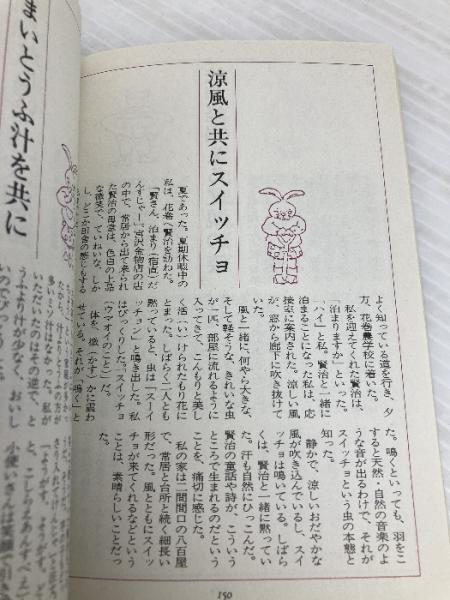 涼風と共にスイッチョ
夏であった。夏期休暇中の
私は、花巻へ賢治を訪ねた。
「賢さん、泊まり(宿直)だ
んすじゃ――」宮沢金物店の店
の中で、常居から出て来られ
た賢治の母堂は、色白の上品
な微笑で、ていねいな、しか
し、どこか田舎の感じもする
よく知っている道を行き、夕
方、花巻農学校に着いた。
私を迎えてくれた賢治は、
「泊まりますか」といった。
「ハイ」私。賢治と一緒に
泊まることになった私は、応
接室に案内された。涼しい風
が、窓から廊下に吹き抜けて
いた。
風と一緒に、何やら大きな、
そして軽そうな、きれいな虫
が一匹、部屋に流れるように
入ってきて、こんもりと美し
く活(い)けられたもり花に
とまった。しばらく二人とも
黙っていると、虫は「スーイ
ッチョン」と鳴き出した。私
はびっくりした。「スイッチョ
(ウマオイのこと)だ。
体を、微(かす)かに震わ
せている。それが「鳴く」と
た。鳴くといっても、羽をこ
すると天然・自然の音楽のよ
うな音が出るわけで、それが
スイッチョという虫の本態と
知った。
静かで、涼しいおだやかな
風が吹き込んでいるし、スイ
ッチョは鳴いている。しばら
くは、賢治と一緒に黙ってい
た。汗も自然にひっこんだ。
賢治の童話や詩が、こういう
ところで生まれるのだという
ことを、痛切に感じた。
私の家は二間間口の八百屋
で、常居と台所と続く細長い
形だった。風とともにスイッ
チョが来てくれるなどという
ことは、素晴らしいことだっ
150
まいとうふ汁を共に